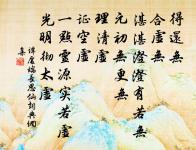 得還無
合虛無
湛湛澄澄有若無
元初無更無
理清虛
証空虛
一點靈源實若虛
光明徹太虛
譚處端長思仙